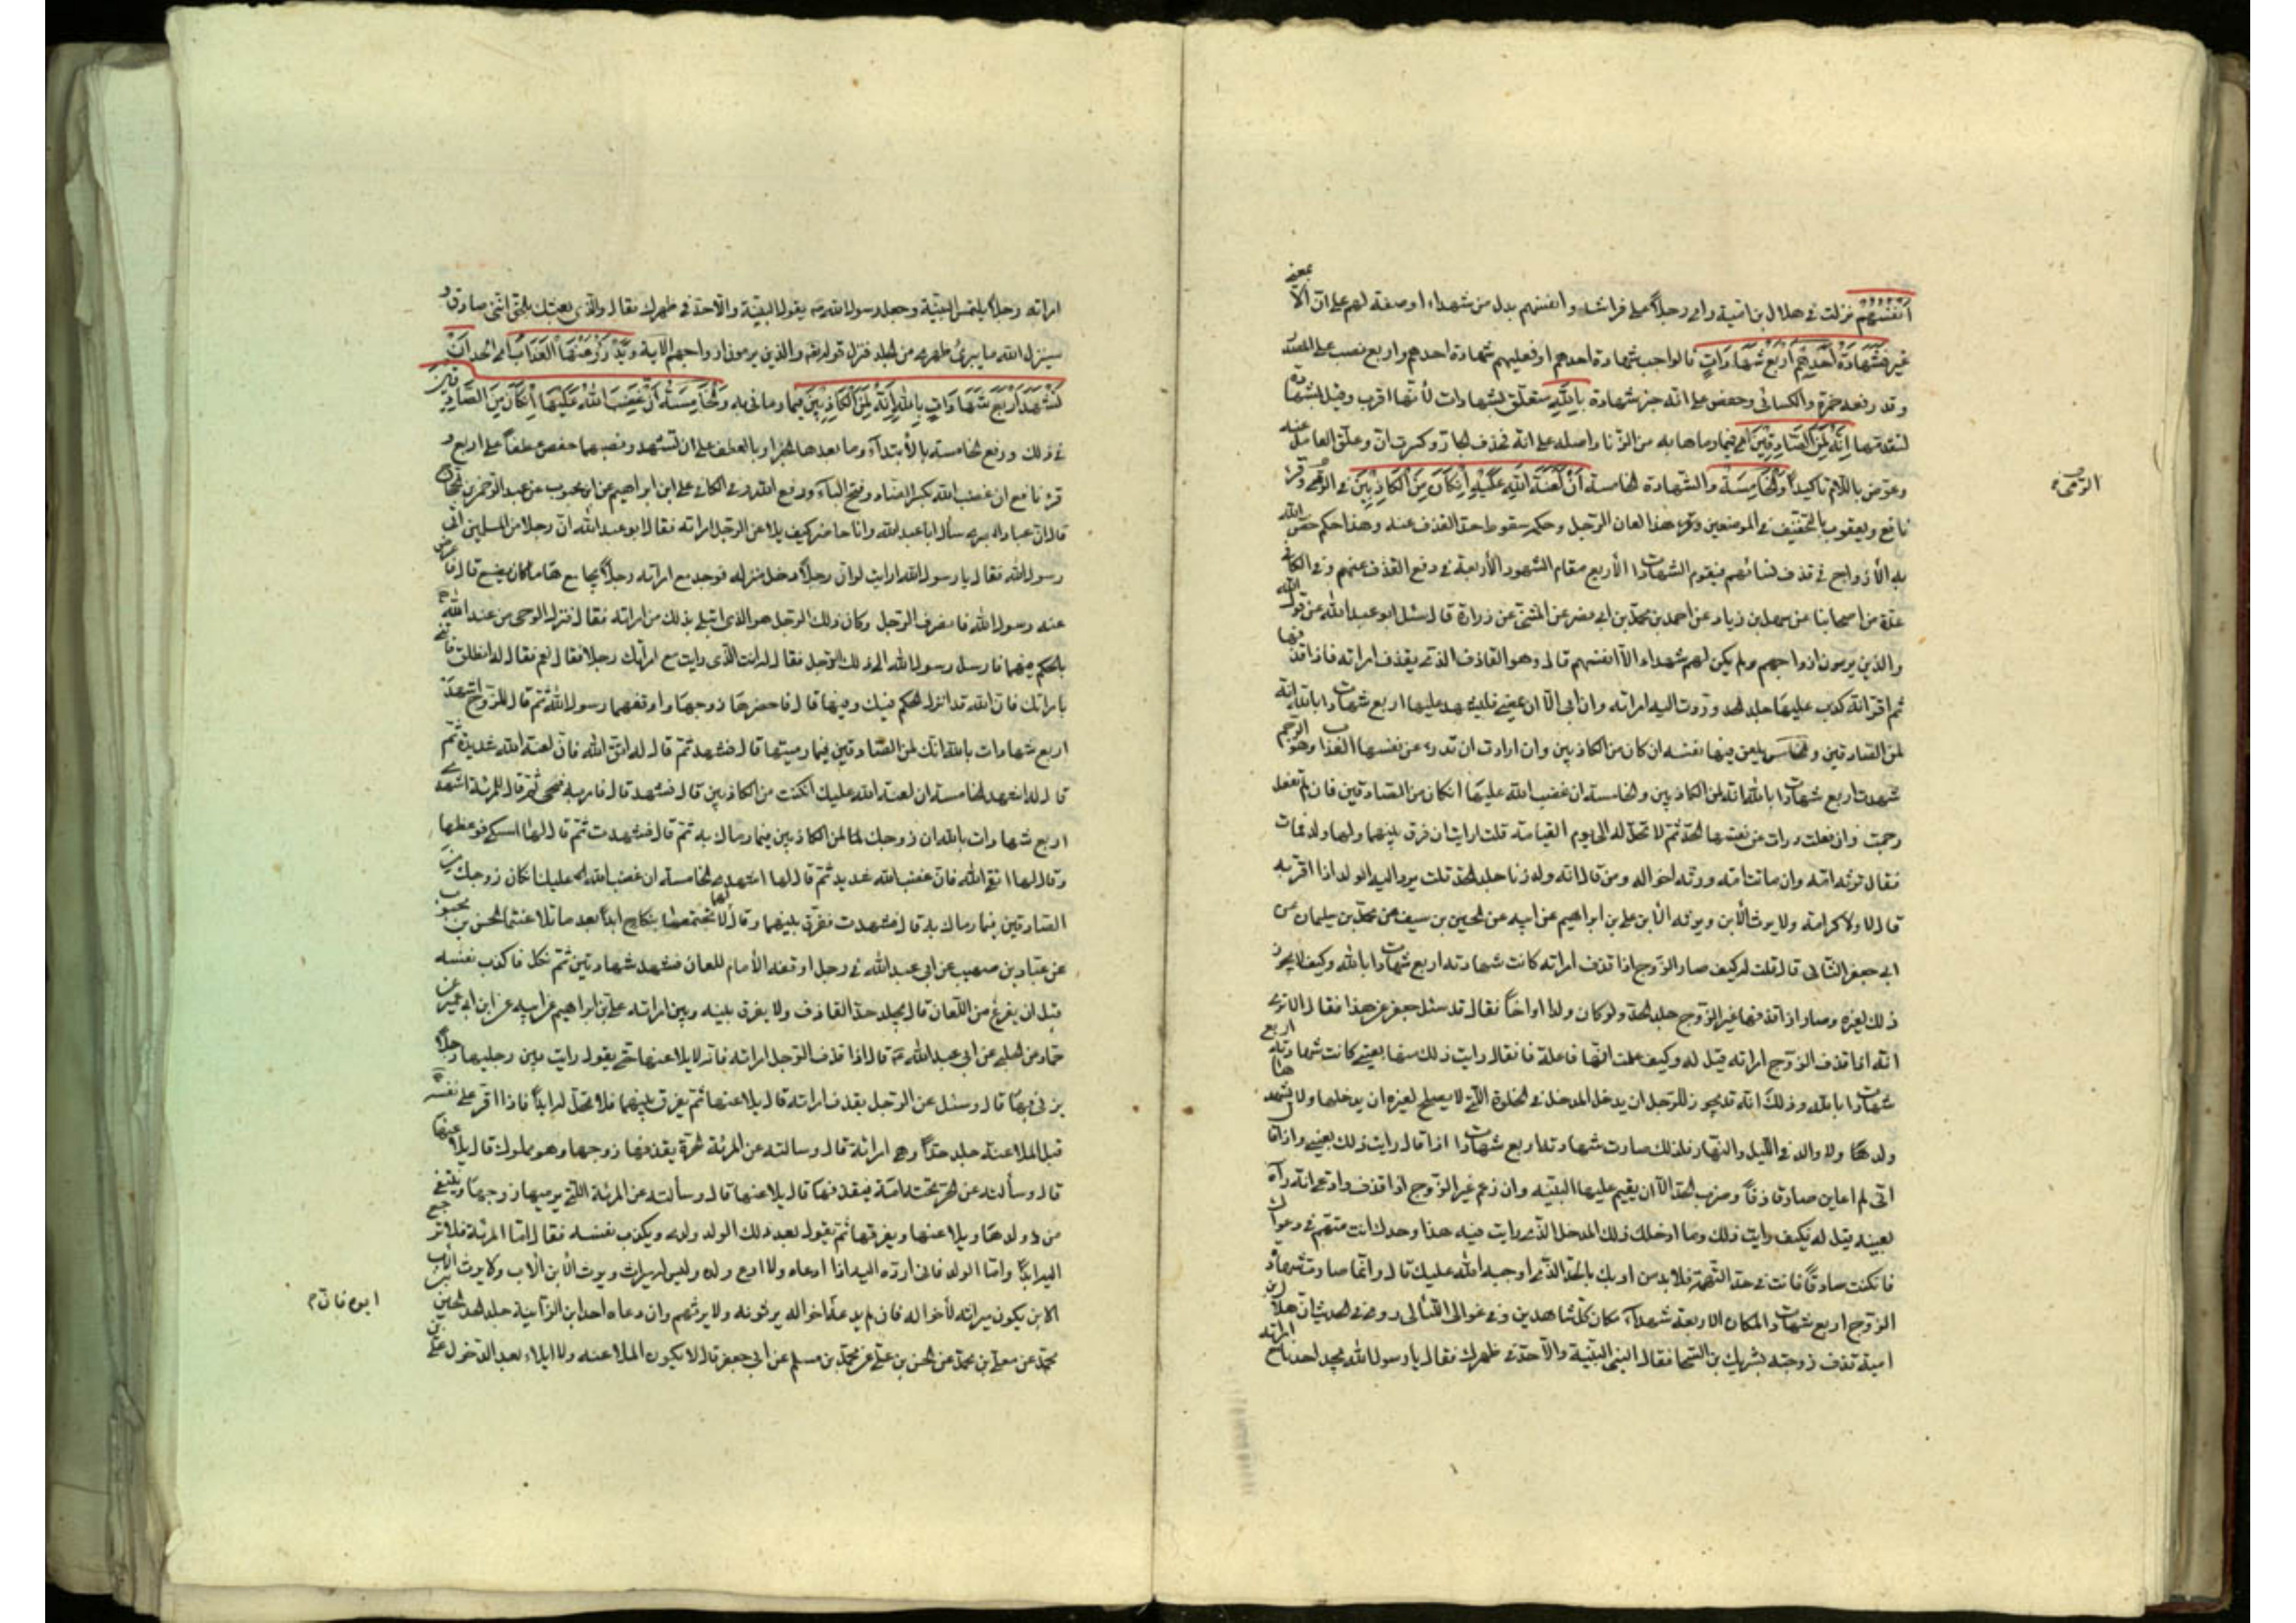 أَنْفُسُهُمْ نزلت في هلال بن امية رأى رجلاً على فراشه وانفسهم بدل من شهداء او صفة لهم على ان الا بمعنى
غير فَشَهَادَةُ أَحَدِهِمْ أَرْبَعُ شَهَادَاتٍ فالواجب شهادة احدهم او فعليهم شهادة احدهم واربع نصب على المصدر
وقد رفعه حمزة والكسائي وحفص على انه خبر شهادة بِاللَّهِ متعلق بشهادات لأنها اقرب وقيل بشهادة
لتقدمها إِنَّهُ لَمِنَ الصَّادِقِينَ اى فيما رماها به من الزنا واصله على انه فحذف الجار وكسرت ان وعلق العامل عنه
وعوض باللام تاكيداً وَالْخَامِسَةُ والشهادة الخامسة أَنَّ لَعْنَةَ اللَّهِ عَلَيْهِ إِنْ كَانَ مِنَ الْكَاذِبِينَ في الرمى وقرء
نافع ويعقوب بالتخفيف في الموضعين هذا لعان الرجل وحكمه سقوط حد القذف عنه وهذا حكم خص الله
به الأزواج في قذف نسائهم فيقوم الشهادات الأربع مقام الشهود الأربعة في دفع القذف عنهم وفي الكافي
عدة من اصحابنا عن سهل بن زياد عن احمد بن محمد بن ابي نصر عن المثنى عن زرارة قال سئل ابو عبد الله عن قول الله
والذين يرمون ازواجهم ولم يكن لهم شهداء الا انفسهم قال وهو القاذف الذي يقذف امراته فاذا قذفها
ثم اقر انه كذب عليها جلد الحد وردت اليه امراته وان ابى الا ان يمضى فليشهد عليها اربع شهادات بالله انه
لمن الصادقين والخامسة يلعن فيها نفسه ان كان من الكاذبين وان ارادت ان تدرء عن نفسها العذاب وهو الرجم
شهدت اربع شهادات بالله انه لمن الكاذبين والخامسة ان غضب الله عليها ان كان من الصادقين فان لم تفعل
رجمت وان فعلت درات عن نفسها الحد ثم لا تحل له الى يوم القيامة قلت ارايت ان فرق بينهما ولها ولد فمات
فقال ترثه امه وان ماتت امه ورثه اخواله ومن قال انه ولد زنا جلد الحد قلت يرد اليه الولد اذا اقر به
قال لا ولا كرامة ولا يرث الابن ويرثه الابن علي بن ابراهيم عن ابيه عن الحسين بن سيف عن محمد بن سليمان عن
ابي جعفر الثاني قال قلت له كيف صار الزوج اذا قذف امراته كانت شهادته اربع شهادات بالله وكيف لا يجوز
ذلك لغيره وصار اذا قذفها غير الزوج جلد الحد ولو كان ولدا او اخاً فقال قد سئل جعفر عن هذا فقال الا ترى
انه اذا قذف الزوج امراته قيل له وكيف علمت انها فاعلة فان قال رايت ذلك منها بعينى كانت شهادته اربع
شهادات بالله وذلك انه قد يجوز للرجل ان يدخل المدخل في الخلوة التي لا يصلح لغيره ان يدخلها ولا يشهدها
ولد ولا والد في الليل والنهار فلذلك صارت شهادته اربع شهادات اذا قال رايت ذلك بعيني واذا قال
انى لم اعاين صار قاذفاً وضرب الحد الا ان يقيم عليها البينة وان زعم غير الزوج اذا قذف وادعى انه رآه
بعينه قيل له كيف رايت ذلك وما ادخلك ذلك المدخل الذي رايت فيه هذا وحدك انت متهم في دعواك
فان كنت صادقاً فانت في حد التهمة فلا بد من ادبك بالحد الذي اوجبه الله عليك قال وانما صارت شهادة
الزوج اربع شهادات لمكان الاربعة شهداء مكان كل شاهد يمين وفي غوالى اللئالى روى في الحديث ان هلال بن
امية قذف زوجته بشريك بن السحما فقال النبي البينة والا حد في ظهرك فقال يا رسول الله يجد احدنا مع امراته
الرمى
امراته رجلاً يلتمس البينة وجعل رسول الله ص يقول البينة والا حد في ظهرك فقال والذي بعثك بالحق اننى صادق و
سينزل الله ما يبرئ ظهرى من الجلد فنزل قوله تعالى والذين يرمون ازواجهم الاية وَيَدْرَؤُا عَنْهَا الْعَذَابَ اى الحد أَنْ
تَشْهَدَ أَرْبَعَ شَهَادَاتٍ بِاللَّهِ إِنَّهُ لَمِنَ الْكَاذِبِينَ فيما رمانى به وَالْخَامِسَةَ أَنَّ غَضَبَ اللَّهِ عَلَيْهَا إِنْ كَانَ مِنَ الصَّادِقِينَ
في ذلك ورفع الخامسة بالأبتداء وما بعدها الخبر او بالعطف على ان تشهد ونصبهما حفص عطفاً على اربع و
قرء نافع ان غضب الله بكسر الضاد وفتح الباء ورفع الله وفي الكافي علي بن ابراهيم عن ابن محبوب عن عبد الرحمن بن الحجاج
قال ان عباد البصرى سأل ابا عبد الله وانا حاضر كيف يلاعن الرجل امراته فقال ابو عبد الله ان رجلا من المسلمين اتى
رسول الله فقال يا رسول الله ارايت لو ان رجلاً دخل منزله فوجد مع امراته رجلاً يجامعها ما كان يصنع قال فاعرض
عنه رسول الله فانصرف الرجل وكان ذلك الرجل هو الذي ابتلى بذلك من امراته فقال فنزل الوحى من عند الله
بالحكم فيهما فارسل رسول الله الى ذلك الرجل فقال له انت الذي رايت مع امرأتك رجلا فقال نعم فقال له انطلق فاتنى
بامراتك فان الله قد انزل الحكم فيك وفيها قال فاحضرها زوجها واوقفهما رسول الله ثم قال للزوج اشهد
اربع شهادات بالله انك لمن الصادقين فيما رميتها قال فشهد ثم قال له اتق الله فان لعنة الله شديدة ثم
قال له اشهد الخامسة ان لعنة الله عليك ان كنت من الكاذبين قال فشهد قال فامر به فنحى ثم قال للمرئة اشهدى
اربع شهادات بالله ان زوجك لمن الكاذبين فيما رماك به ثم قال فشهدت ثم قال لها امسكى فوعظها
وقال لها اتقى الله فان غضب الله شديد ثم قال لها اشهدى الخامسة ان غضب الله عليك ان كان زوجك من
الصادقين فيما رماك به قال فشهدت ففرق بينهما وقال لهما لا تجتمعا بنكاح ابداً بعد ما تلاعنتما الحسن بن محبوب
عن عباد بن صهيب عن ابي عبد الله في رجل اوقفه الأمام للعان فشهد شهادتين ثم نكل فاكذب نفسه
قبل ان يفرغ من اللعان قال يجلد حد القاذف ولا يفرق بينه وبين امراته علي بن ابراهيم عن ابيه عن ابن ابي عمير عن
حماد عن الحلبي عن ابي عبد الله ع قال اذا قذف الرجل امراته فانه لا يلاعنها حتى يقول رايت بين رجليها رجلاً
يزنى بها قال وسئل عن الرجل يقذف امراته قال يلاعنها ثم يفرق بينهما فلا تحل له ابداً فاذا اقر على نفسه
قبل الملاعنة جلد حداً وهى امراته قال وسالته عن المرئة الحرة يقذفها زوجها وهو مملوك قال يلاعنها
قال وسألته عن الحر تحته امة فيقذفها قال يلاعنها قال وسألته عن المرئة التي يرميها زوجها وينتفى
من ولدها ويلاعنها ويفارقها ثم يقول بعد ذلك الولد ولدى ويكذب نفسه فقال اما المرئة فلا ترجع
اليه ابداً واما الولد فانى ارده اليه اذا ادعاه ولا ادع ولده وليس له ميراث ويرث الأبن الأب ولا يرث الأب
الابن يكون ميراثه لأخواله فان لم يدعه اخواله يرثونه ولا يرثهم وان دعاه احد ابن الزانية جلد الحد الحسين بن
محمد عن معلى بن محمد عن الحسن بن علي عن محمد بن مسلم عن ابي جعفر قال لا يكون الملاعنة ولا ايلاء بعد الدخول على
ابوه فان م